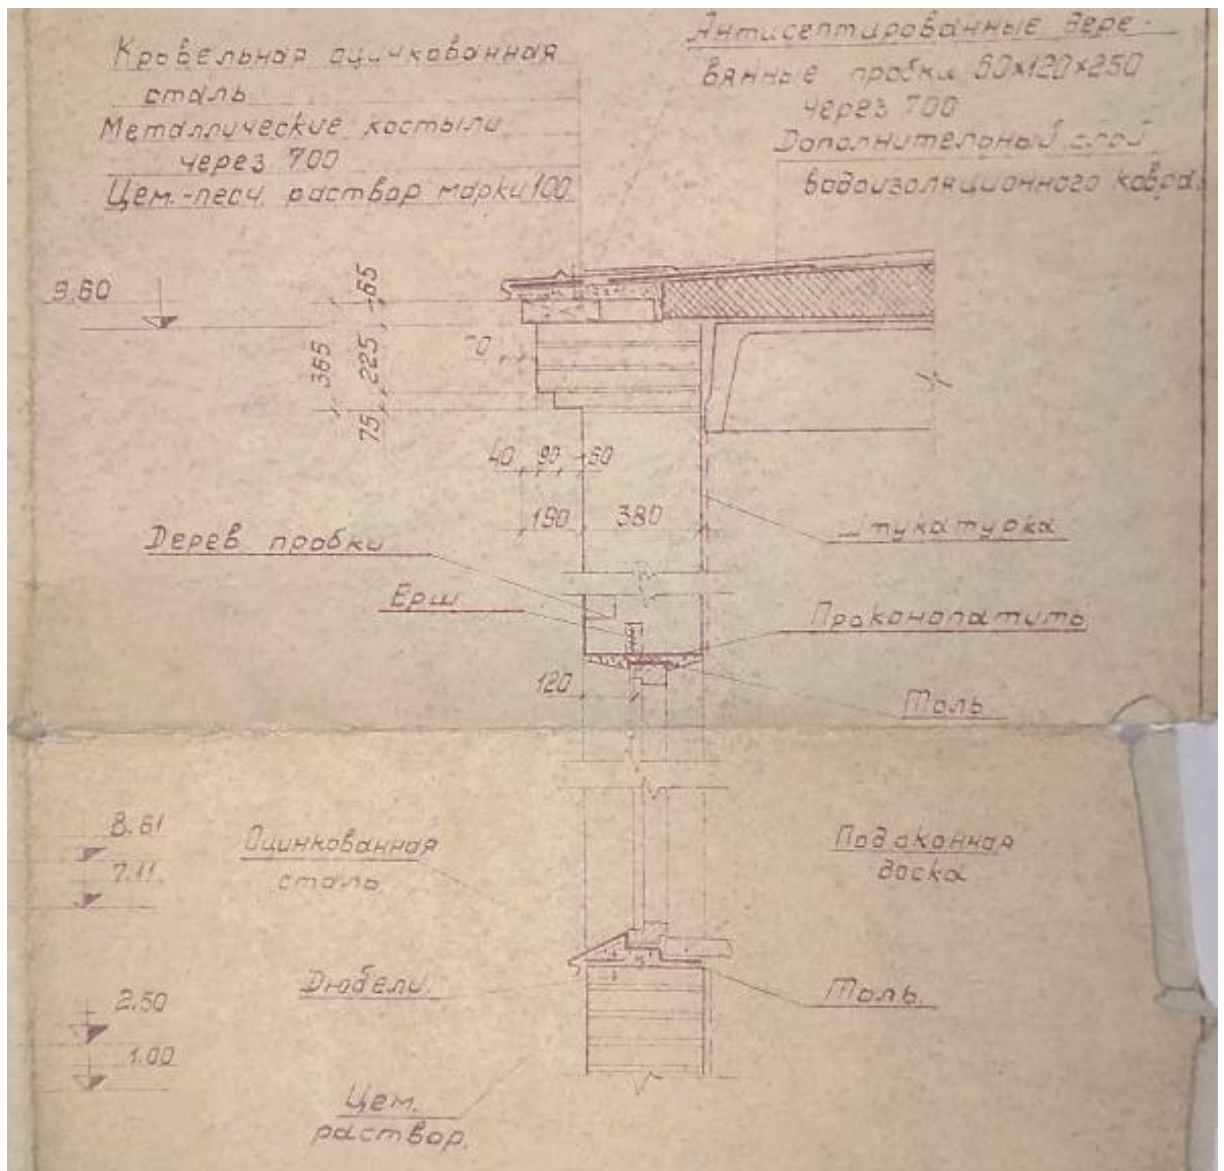 Кровельная оцинкованная
сталь
Металлические костыли
через 700
Цем.-песч. раствор марки 100
Антисептированные дере-
вянные пробки 60х120х250
через 700
Дополнительный слой
водоизоляционного ковра.
9.60
65
365
225
75
70
40 90 60
190 380
Штукатурка
Дерев пробки
Ерш
Проконопатить
120
Толь
8.61
7.11
Оцинкованная
сталь
Подоконная
доска
Дюбели.
Толь.
2.50
1.00
Цем.
раствор.